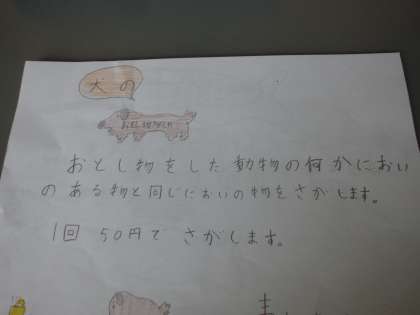 犬の
おとし物をした動物の何かにおい
のある物と同じにおいの物をさがします。
1回 50円で さがします。